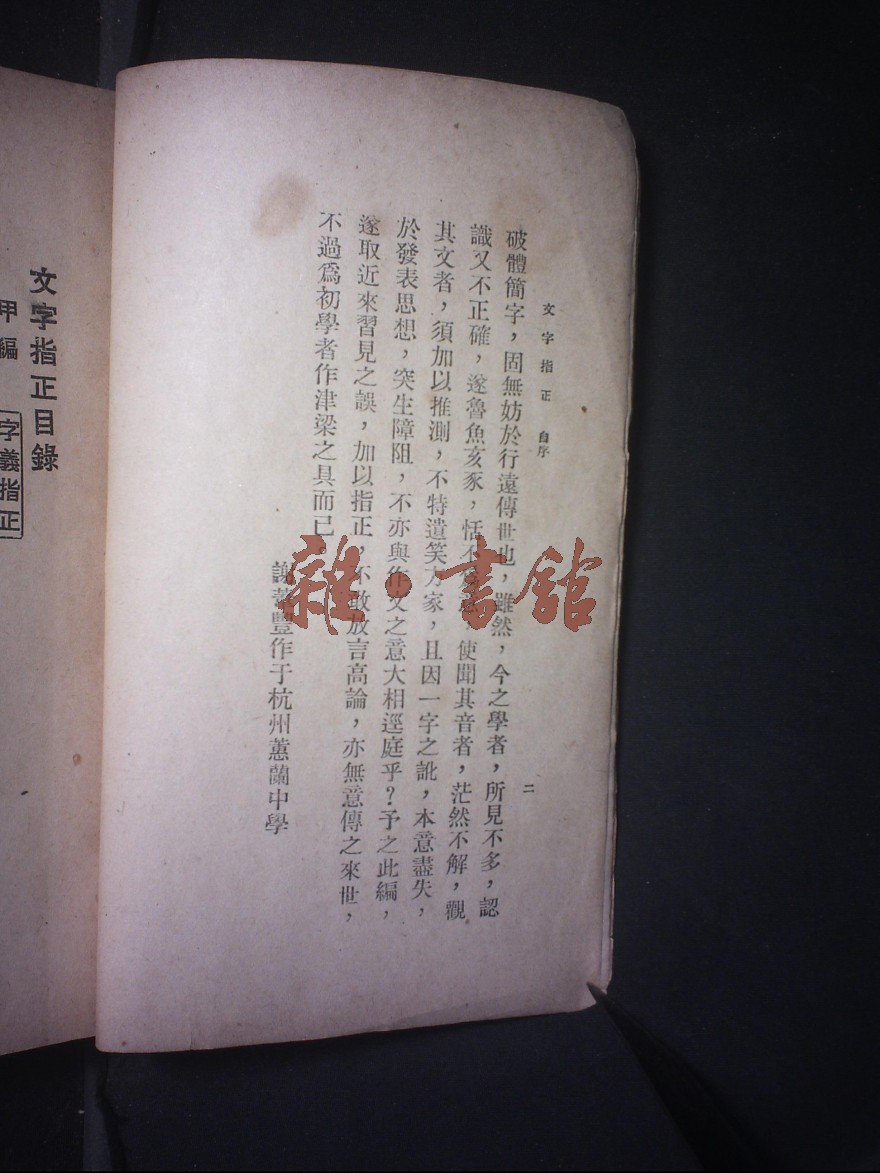 文字指正 自序
二
破體簡字，固無妨於行遠傳世也，雖然，今之學者，所見不多，認
識又不正確，遂魯魚亥豕，恬不為意，使聞其音者，茫然不解，觀
其文者，須加以推測，不特遺笑方家，且因一字之訛，本意盡失，
於發表思想，突生障阻，不亦與作文之意大相逕庭乎？予之此編，
遂取近來習見之誤，加以指正，不敢放言高論，亦無意傳之來世，
不過爲初學者作津梁之具而已。
謝 豐作于杭州蕙蘭中學
文字指正目錄
甲編 字義指正
雜·書館